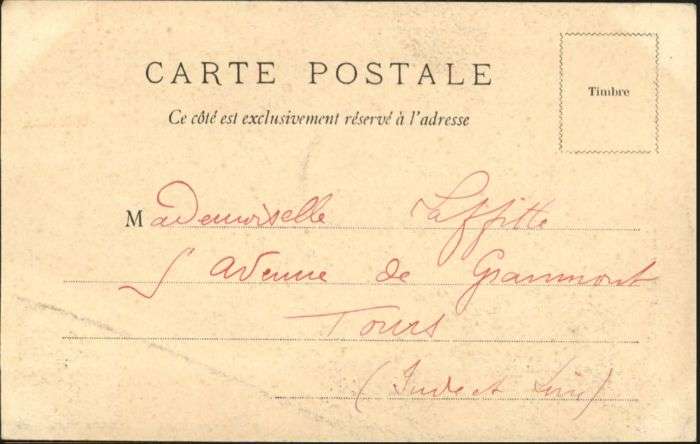 CARTE POSTALE
Timbre
Ce côté est exclusivement réservé à l'adresse
Mademoiselle Laffitte
5 Avenue de Grammont
Tours
(Indre et Loire)